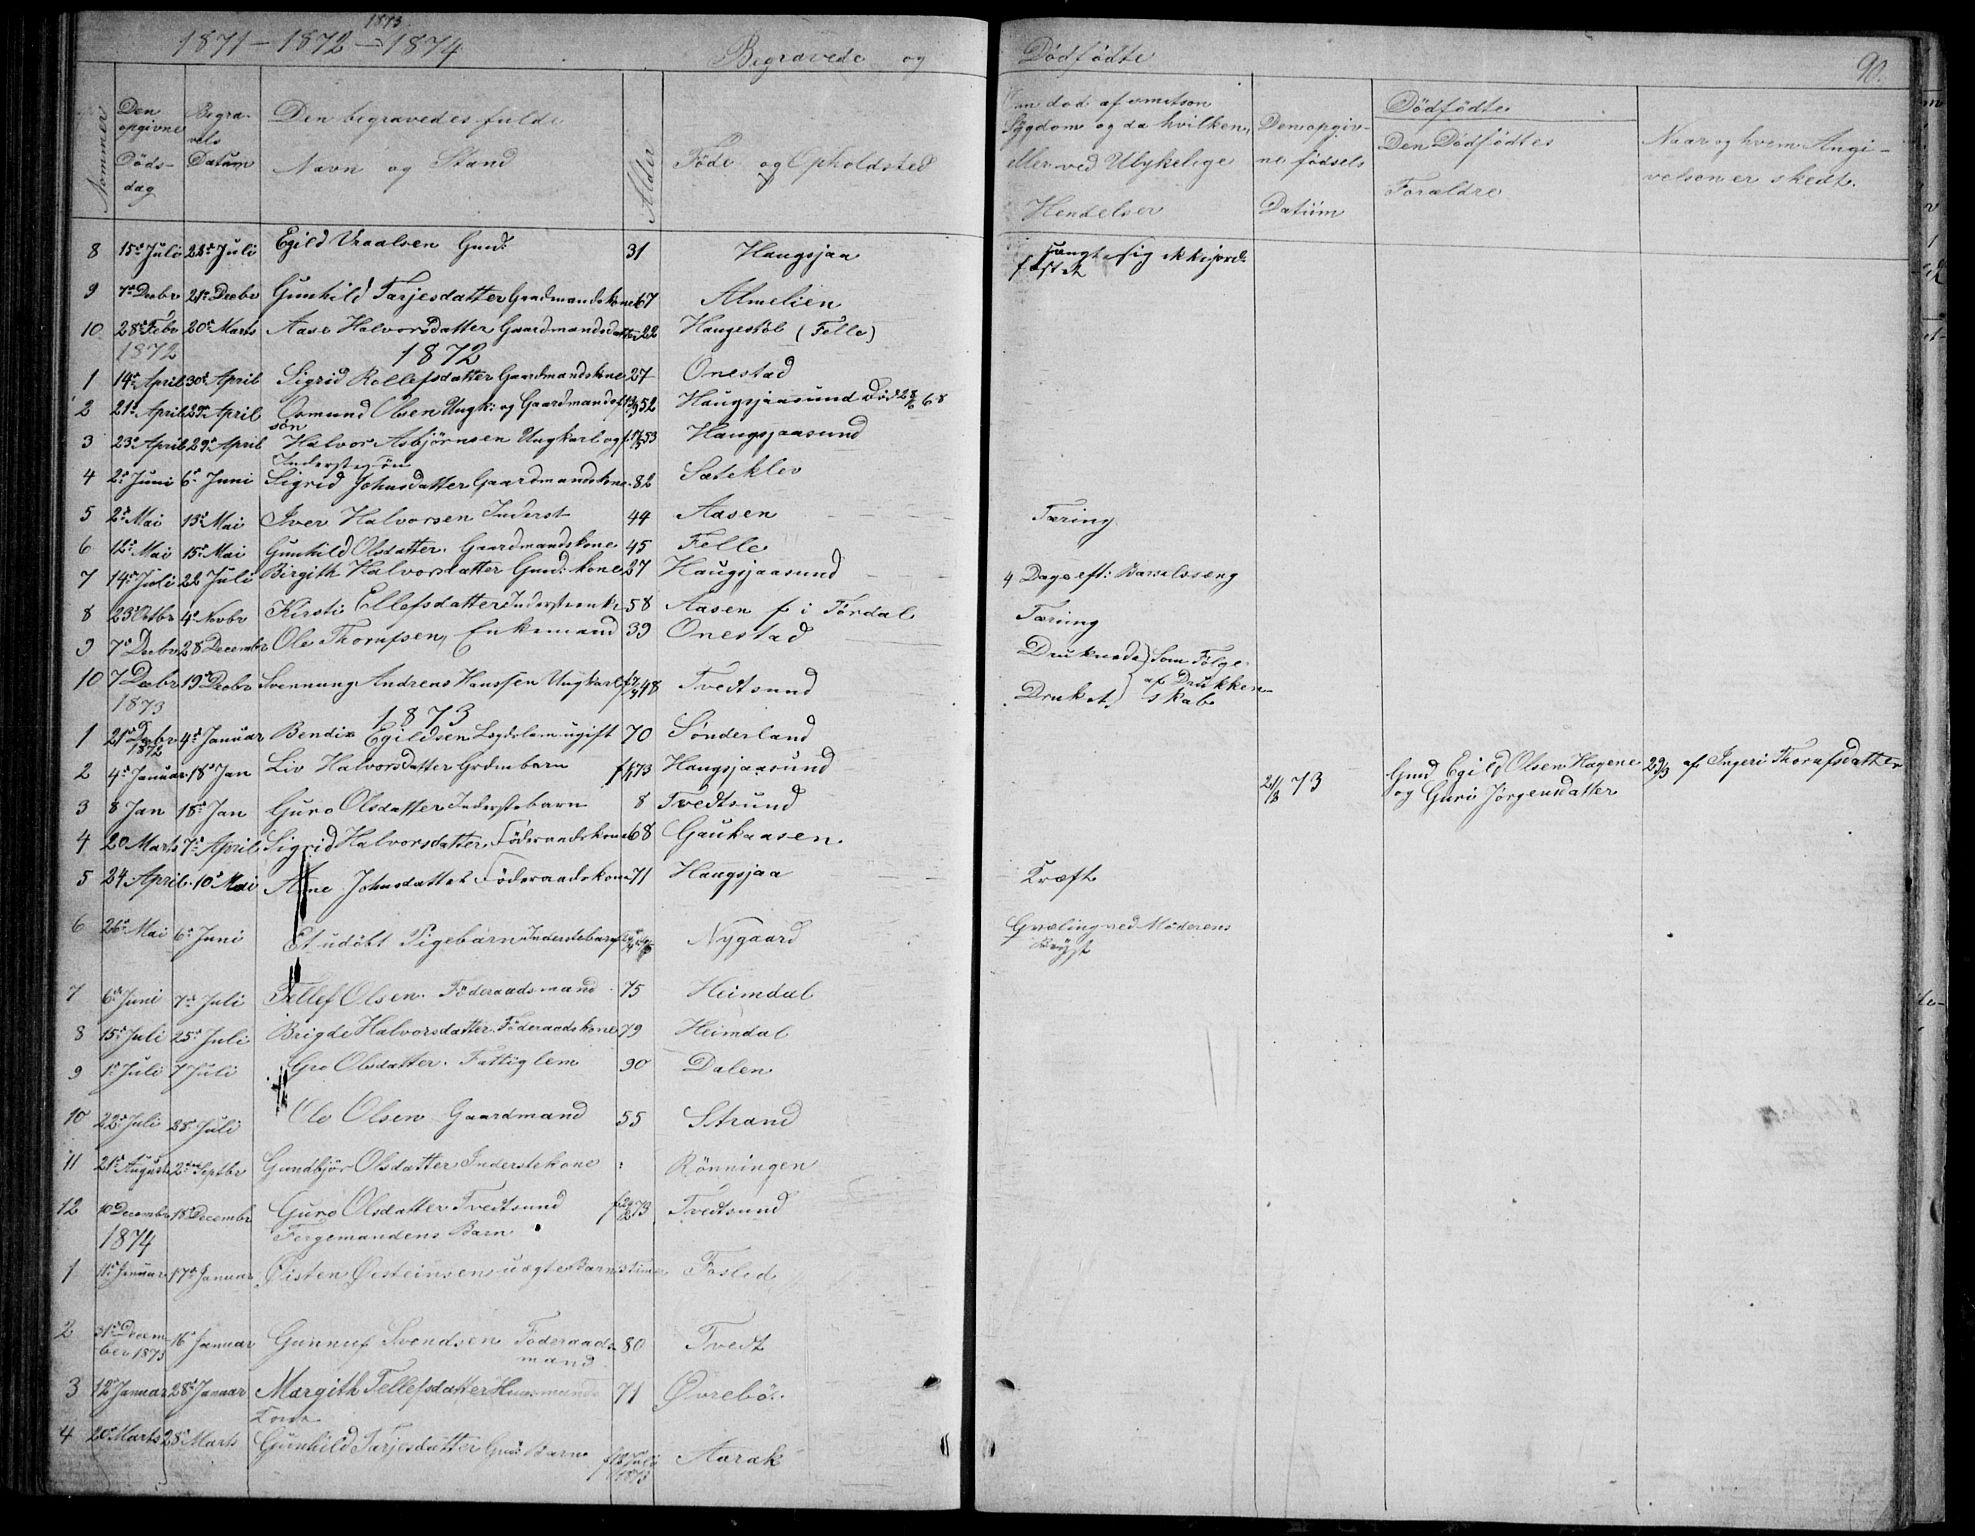 1871 - 1872 - 1873 - 1874
Begravede og Dødfødte 90.
Nommer
Den opgivne Døds-dag
Begra-vels Datum
Den begravedes fulde Navn og Stand
Alder
Føde og Opholdsted
Om død af smitsom Sygdom og da hvilken, eller ved Ulykelige Hendelser
Den opgiv-ne fødsels Datum
Dødfødte
Den Dødfødtes Forældre
Naar og hvem Angi-velsen er skedt.
8 15de Juli 22de Juli Egild Vraalsen Gmd: 31 Haugsjaa hængte sig ikke jord-fæstet
9 7de Decbr 21de Decbr Gunhild Tarjesdatter Gaardmandskone 67 Almelien
10 28de Febr 20de Marts Aase Halvorsdatter Gaardmandsdatter 22 Haugestöl (Felle)
1872 1872
1 14de April 30de April Sigrid Rollefsdatter Gaardmandskone 27 Onestad
2 21de April 29de April Osmund Olsen Ungk: og Gaardmands søn 52 Haugsjaasund
3 23de April 29de April Halvor Asbjørnsen Ungkarl og Inderstesøn 53 Haugsjaasund
4 2de Juni 6te Juni Sigrid Johnsdatter Gaardmandskone 82 Sateklev
5 2de Mai 13de Mai Iver Halvorsen Inderst 44 Aasen Tæring
6 12te Mai 15de Mai Gunhild Olsdatter. Gaardmandskone 45 Felle
7 14de Juli 22 Juli Birgith Halvorsdatter Gmd: kone 27 Haugsjaasund 4 Dage eft: Barselsseng
8 23 Octbr 4de Novbr Kirsti Ellefsdatter Inderstenk: 58 Aasen f i Tørdal Tæring
9 7de Decbr 28 Decembr Ole Thorufsen, Enkemand 39 Onestad Druknede } Som Følge af Drukken-skab
10 7 Decbr 19de Decbr Svennung Andreas Hanssen Ungkarl 48 Tvedtsund Druknet }
1873 1873
1 21de Decbr 1872 4de Januar Bendix Egildsen Lægdslem ugift 70 Sønderland
2 4de Januar 18de Jan Liv Halvorsdatter Grdmbarn 73 Haugsjaasund 73 Gmd Egild Olsen Hagene og Guri Jørgensdatter 29/3 af Ingeri Thorufsdatter
3 8 Jan 18de Jan Guro Olsdatter Inderstebarn 8 Tvedtsund
4 20 Marts 7de April Sigrid Halvorsdatter Föderaadskone 68 Gaukaasen
5 24 April 10de Mai Anne Johnsdatter Föderaadskone 71 Haugsjaa Kræft
6 26de Mai 6te Juni Et udöbt Pigebarn Inderstebarn Nygaard Qvæling ved Moderens Bryst
7 6te Juni 7de Juli Tellef Olsen. Föderaadsmand 75 Heimdal
8 15de Juli 25de Juli Brigde Halvorsdatter. Föderaadskone 79 Heimdal
9 1de Juli 7 Juli Gro Olsdatter. Fattiglem 90 Dalen
10 22de Juli 28de Juli Ole Olsen Gaardmand 55 Strand
11 21de August 2den Septbr Gundbjör Olsdatter Inderstekone : Rönningen
12 10 Decembr 18de Decembr Guro Olsdatter Tvedtsund Fergemandens Barn 73 Tvedtsund
1874
1 11te Januar 17de Januar Øisten Øisteinsen uægte Barn timer Foslid
2 31de Decem-ber 1873 16de Januar Gunnuf Svendsen Föderaads mand 80 Tvedt
3 12te Januar 28de Januar Margith Tellefsdatter Husmands Kone 71 Øvrebö.
4 20de Marts 28de Marts Gunhild Tarjesdatter Gmd: Barn f Juli 1873 Aarak